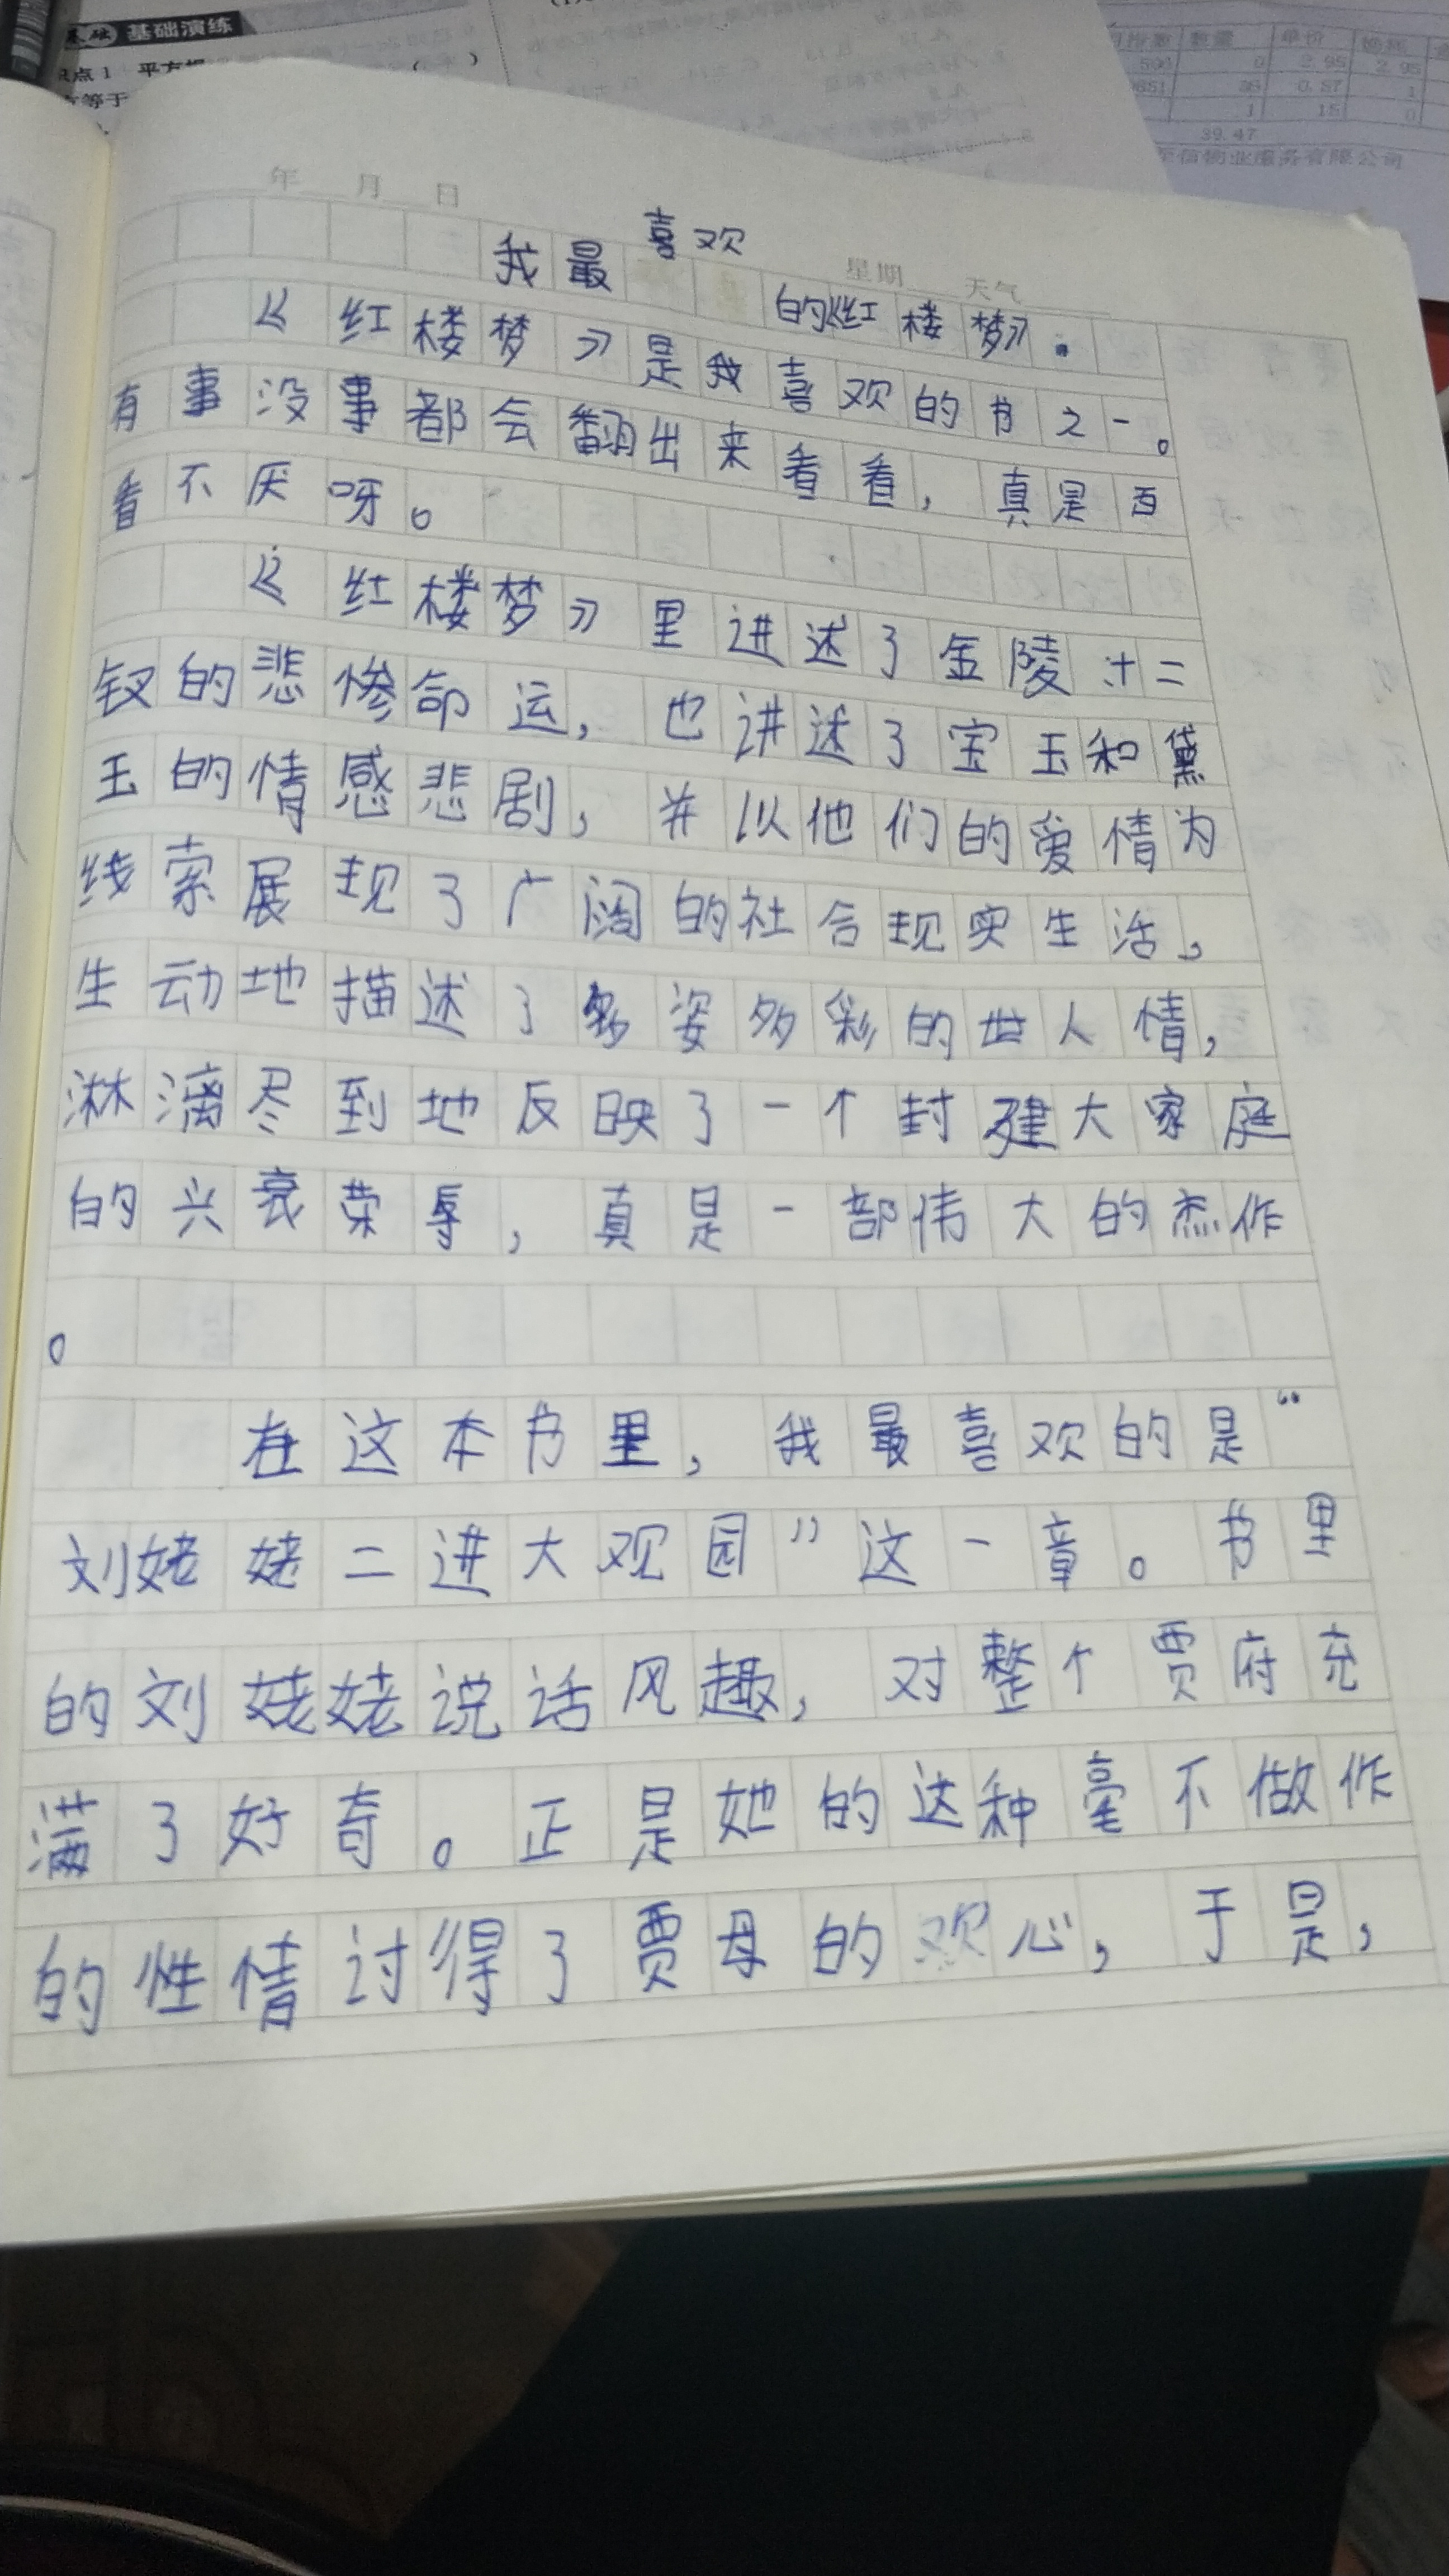 基础演练
平方根
年 月 日
星期 天气
我最喜欢的《红楼梦》.
《红楼梦》是我喜欢的书之一。
有事没事都会翻出来看看，真是百
看不厌呀。
《红楼梦》里讲述了金陵十二
钗的悲惨命运，也讲述了宝玉和黛
玉的情感悲剧，并以他们的爱情为
线索展现了广阔的社会现实生活，
生动地描述了多姿多彩的世人情，
淋漓尽到地反映了一个封建大家庭
的兴衰荣辱，真是一部伟大的杰作
。
在这本书里，我最喜欢的是“
刘姥姥二进大观园”这一章。书里
的刘姥姥说话风趣，对整个贾府充
满了好奇。正是她的这种毫不做作
的性情讨得了贾母的欢心，于是，
数量 单价
2.95 2.95
0.57 1
1 15 0
39.47
信物业服务有限公司